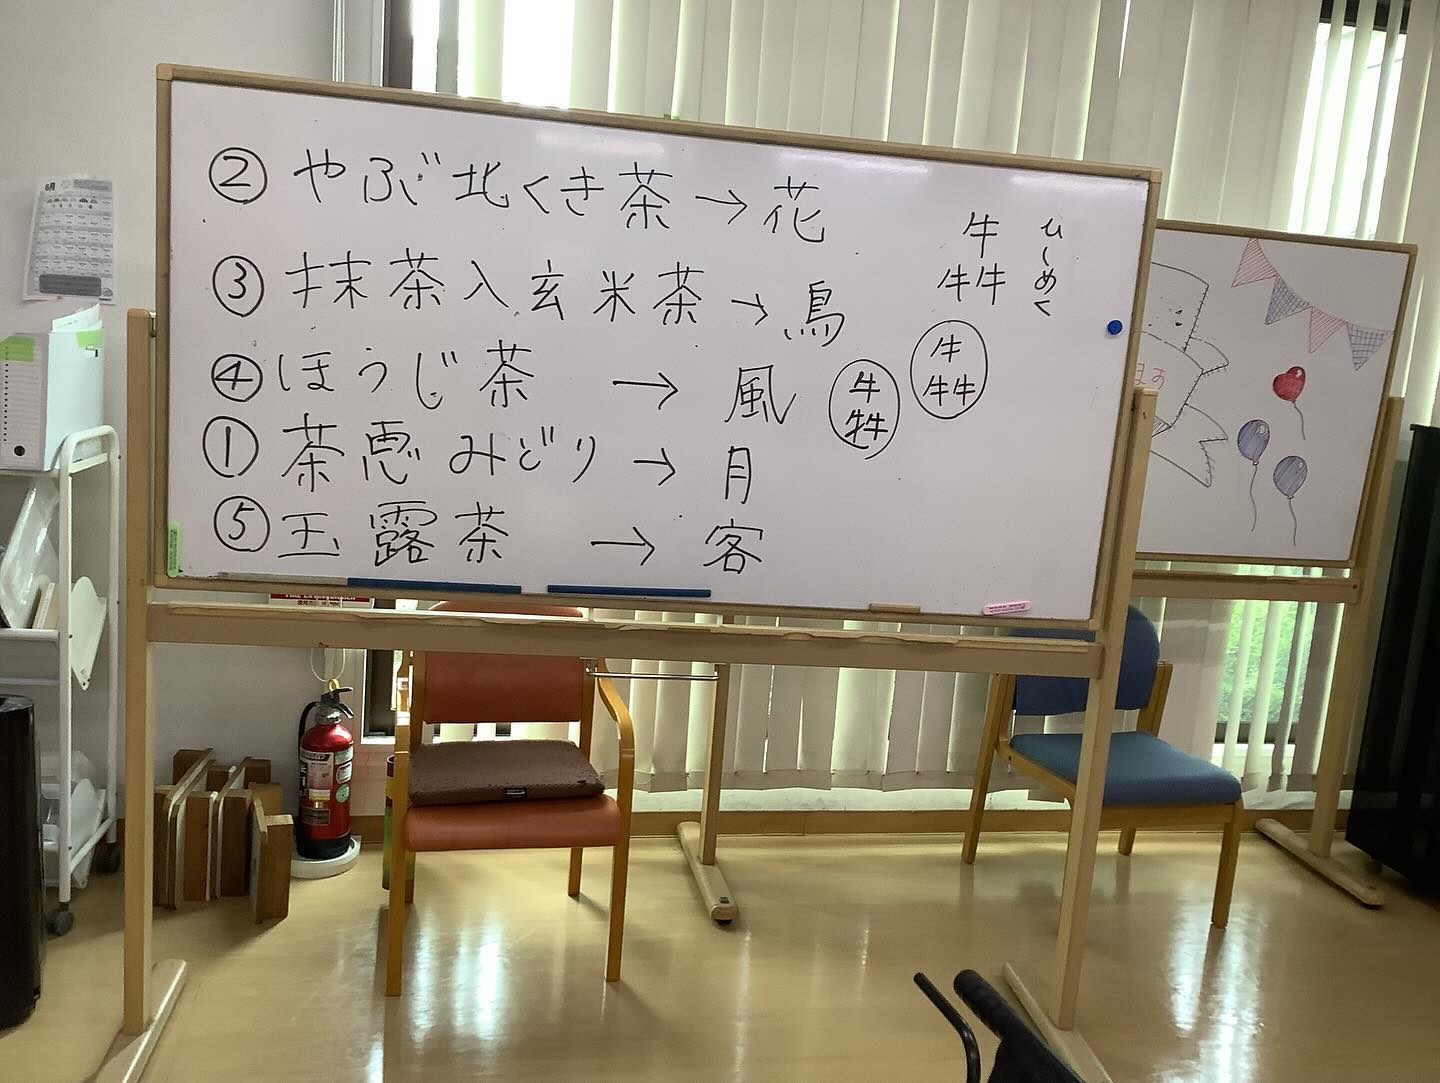 ② やぶ北くき茶 → 花
③ 抹茶入玄米茶 → 鳥
④ ほうじ茶 → 風
① 茶恵みどり → 月
⑤ 玉露茶 → 客
牛
牛牛
ひしめく
牛
牛牛
牛
牛牛
ます
6月